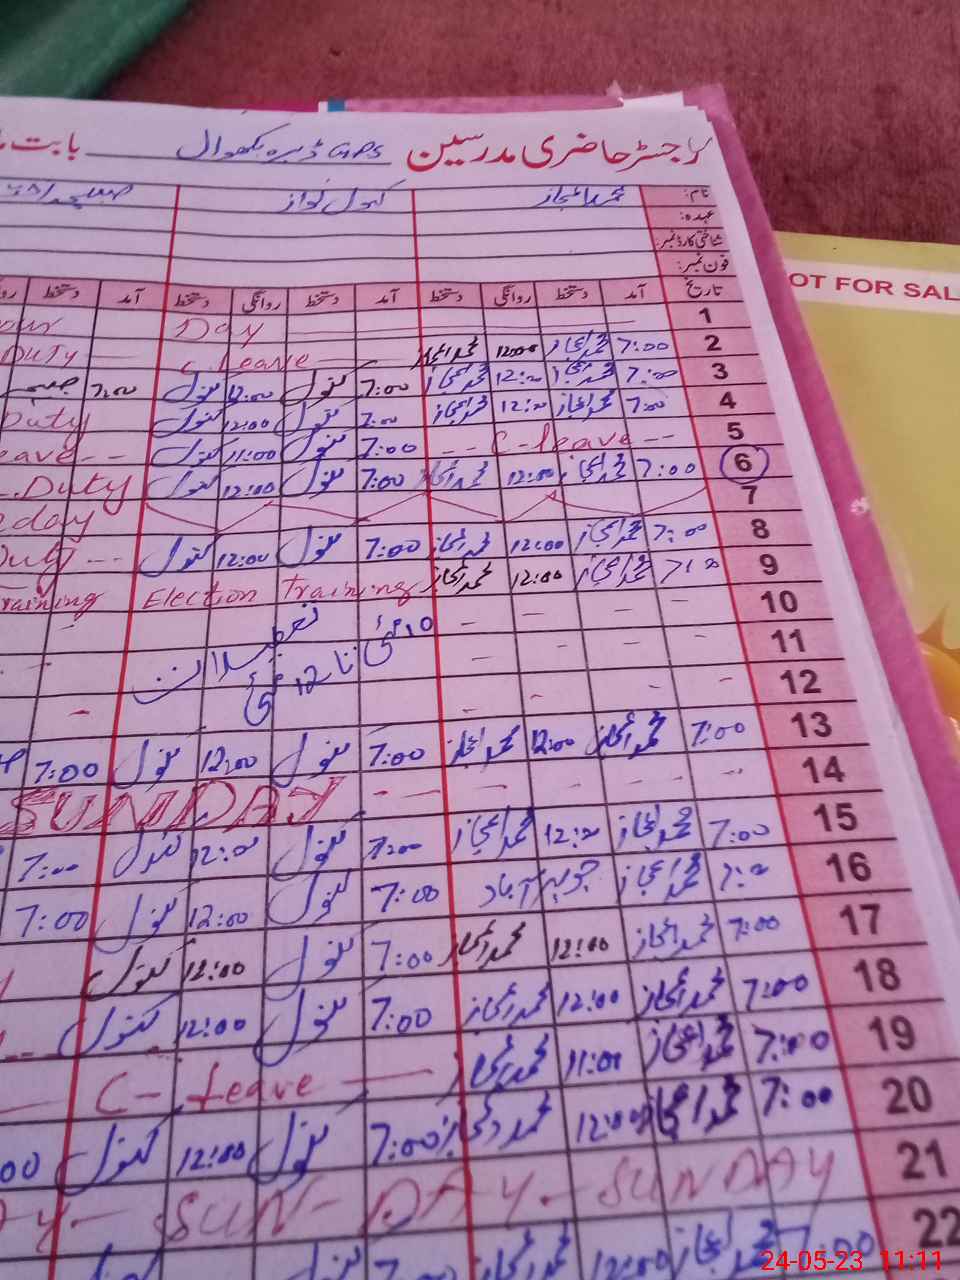 رجسٹر حاضری مدرسین GPS ڈیرہ بکھوال بابت
نام: محمد اعجاز کنول نواز
عہدہ:
شناختی کارڈ نمبر:
فون نمبر:
تاریخ آمد دستخط روانگی دستخط آمد دستخط روانگی دستخط آمد دستخط
1 Day
2 7:00 محمد اعجاز 12:00 محمد اعجاز C. Leave Duty
3 7:00 محمد اعجاز 12:00 محمد اعجاز 7:00 کنول 12:00 کنول 7:00
4 7:00 محمد اعجاز 12:00 محمد اعجاز 7:00 کنول 12:00 کنول Duty
5 C-leave 7:00 کنول 11:00 کنول eave
6 7:00 محمد اعجاز 12:00 محمد اعجاز 7:00 کنول 12:00 کنول Duty
7 day
8 7:00 محمد اعجاز 12:00 محمد اعجاز 7:00 کنول 12:00 کنول Duty
9 7:00 محمد اعجاز 12:00 محمد اعجاز Election Training raining
10 تعطیلات 10 مئی
11 تا 12 مئی
12
13 7:00 محمد اعجاز 12:00 محمد اعجاز 7:00 کنول 12:00 کنول 7:00
14 SUNDAY
15 7:00 محمد اعجاز 12:00 محمد اعجاز 7:00 کنول 12:00 کنول 7:00
16 7:00 محمد اعجاز 7:00 کنول 12:00 کنول 7:00
17 7:00 محمد اعجاز 12:00 محمد اعجاز 7:00 کنول 12:00 کنول
18 7:00 محمد اعجاز 12:00 محمد اعجاز 7:00 کنول 12:00 کنول
19 7:00 محمد اعجاز 11:00 محمد اعجاز C-Leave
20 7:00 محمد اعجاز 12:00 محمد اعجاز 7:00 کنول 12:00 کنول 00
21 SUNDAY SUN-DAY- y-
22 7:00 محمد اعجاز 12:00
OT FOR SAL
24-05-23 11:11